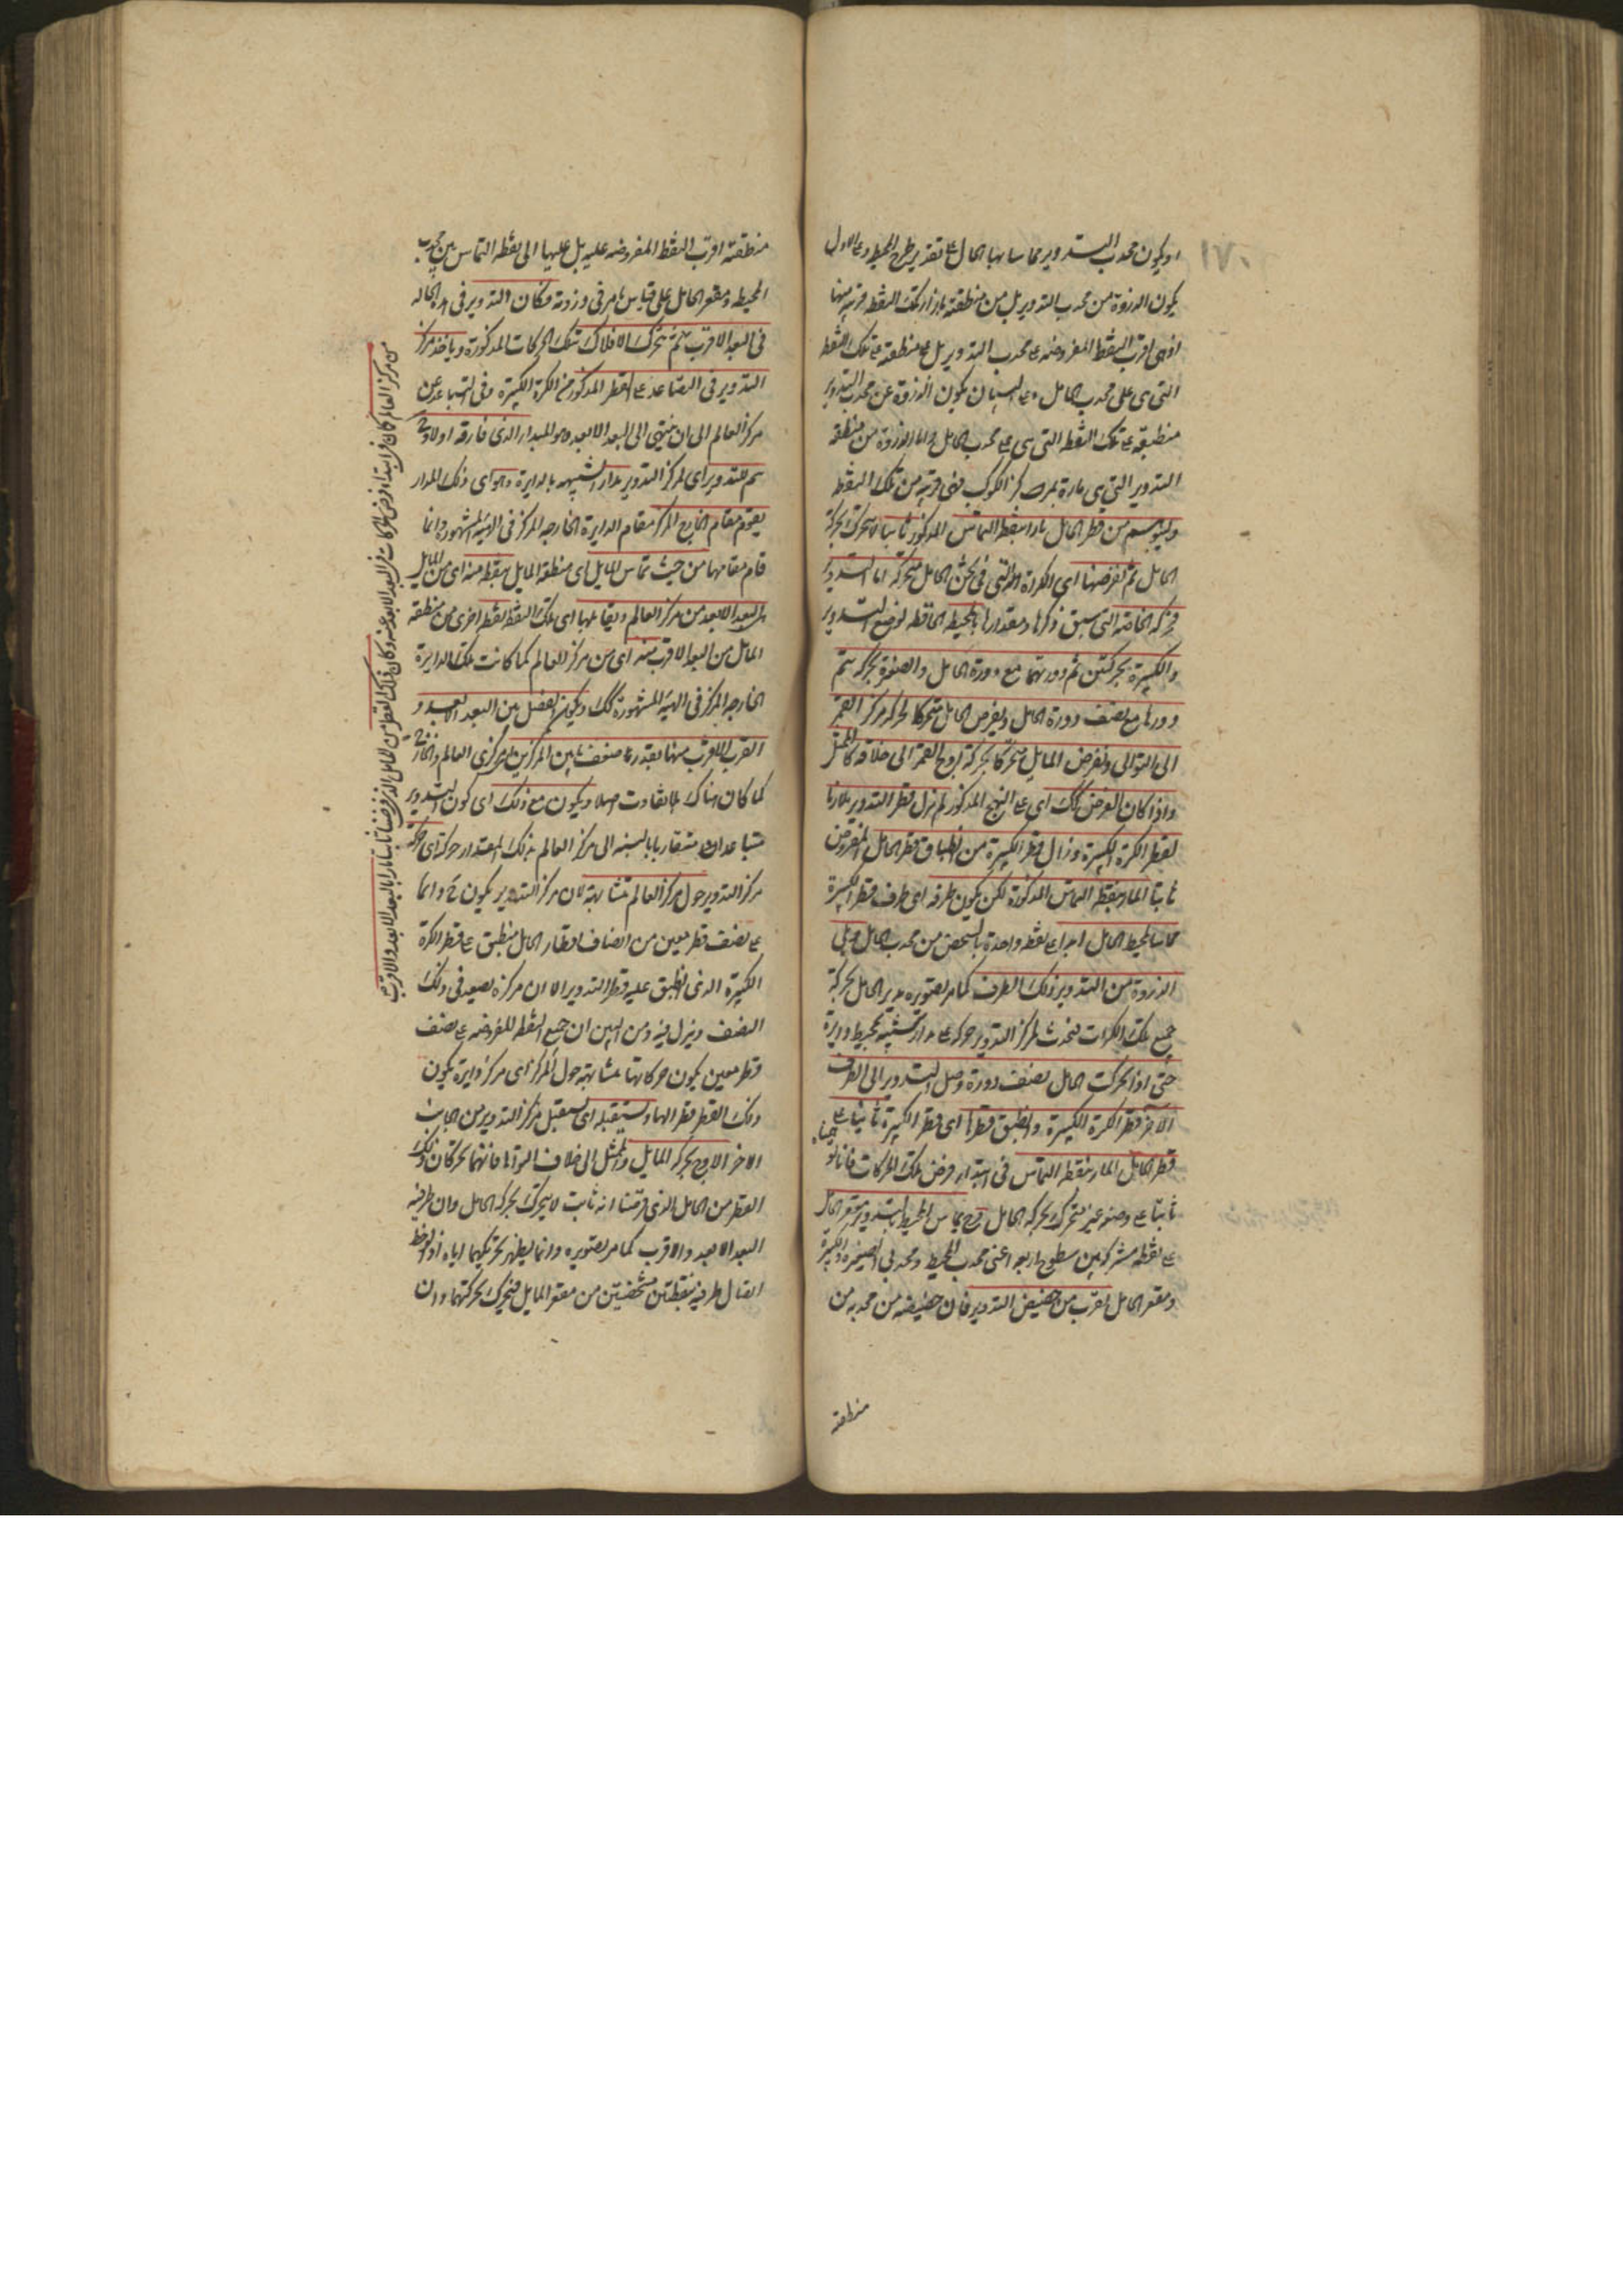 ١٧٠
او يكون محدب التدوير مماسا بها الحامل ع تقدير طرح المحيط وع الاول
يكون الذروة من محدب التدوير بل من منطقته بازاء تلك النقط قريبة منها
اذ هى اقرب النقط المفروضه ع محدب التدوير بل ع منطقته ع تلك النقطه
التى هى على محدب الحامل وع الثانى يكون الذروة عن محدب التدوير
منطبقة ع تلك النقطه التى هى ع محدب الحامل واما الذروة من منطقة
التدوير التى هى مارة بمركز الكوكب فهى قريبة من تلك النقطه
وليتوهم من قطر الحامل مارا بنقطه التماس المذكور ثابتا لا يتحرك بحركة
الحامل ثم لنفرضها اى الكرات التى فى ثخن الحامل متحركة اما التدوير
فبحركته الخاصة التى سبق ذكرها ومقدارها والمحيطه الحافظه لوضع التدوير
والكبيرة بحركتين تتم دورتهما مع دورة الحامل والصغيرة بحركه تتم
دورتها مع نصف دورة الحامل ولنفرض الحامل متحركا كحركة مركز القمر
الى التوالى ولنفرض المايل متحركا بحركة اوج القمر الى خلافه كالممثل
واذا كان الفرض كذلك اى ع النهج المذكور لم يزل قطر التدوير ملازما
لقطر الكرة الكبيرة وزال قطر الكبيرة من انطباق قطر الحامل المفروض
ثابتا المار بنقطه التماس المذكورة لكن يكون طرفه اى طرف قطر الكبيرة
مماسا لمحيط الحامل ابدا ع نقطه واحدة بالشخص من محدب الحامل ويلى
الذروة من التدوير ذلك الطرف كما مر تصويره يدير الحامل بحركة
جميع تلك الكرات فيحدث لمركز التدوير حركه ع مدار شبيه بمحيط دايرة
حتى اذا تحركت الحامل نصف دورة وصل التدوير الى الطرف
الاخر قطر الكرة الكبيرة وانطبق قطرها اى قطر الكبيرة ثانيا ع
قطر الحامل المار بنقطه التماس فى ابتداء فرض تلك الحركات فانا
ثابتا ع وضعه غير متحرك بحركه الحامل فح يماس المحيط بالتدوير مقعر الحامل
ع نقطه مشتركة بين سطوح اربعه اعنى محدب المحيط ومحدبى الصغيره والكبيرة
ومقعر الحامل اقرب من حضيض التدوير فان حضيضه من محدبه من
منطقته
منطقته اقرب النقط المفروضه عليه بل عليها الى نقطه التماس بين محدب
المحيطه ومقعر الحامل على قياس ما مر فى ذروته فكان التدوير فى هذه الحاله
فى البعد الاقرب ثم تتحرك الافلاك تلك الحركات المذكورة وياخذ مركز
التدوير فى التصاعد ع القطر المذكور من الكرة الكبيرة وفى التباعد عن
مركز العالم الى ان ينتهى الى البعد الابعد وهو المبدا الذى فارقه اولا
يتم للتدوير اى لمركز التدوير مدار الشبيه بالدايرة وهو اى ذلك المدار
يقوم مقام الخارج المركز مقام الدايرة الخارجه المركز فى الهيئه المشهورة وانما
قام مقامها من حيث تماس المايل اى منطقة المايل بنقطه منه اى من المايل
هى البعد الابعد من مركز العالم ويقابلها اى تلك النقطه نقطه اخرى من منطقة
المايل من البعد الاقرب منه اى من مركز العالم كما كانت تلك الدايرة
الخارجه المركز فى الهيئه المشهورة كذلك ويكون الفضل بين البعد الابعد و
القرب الاقرب منها بقدر ضعف ما بين المركزين مركزى العالم والخارج
كما كان هناك بلا تفاوت اصلا ويكون مع ذلك اى كون التدوير
متباعدا و متقاربا بالنسبه الى مركز العالم بذلك المقدار حركته اى حركة
مركز التدوير حول مركز العالم متشابهة لان مركز التدوير يكون دائما
ع نصف قطر معين من انصاف اقطار الحامل منطبق ع قطر الكرة
الكبيرة الذى انطبق عليه قطر التدوير الا ان مركزه يصعد فى ذلك
النصف وينزل فيه ومن البين ان جميع النقط المفروضه ع نصف
قطر معين يكون حركاتها متشابهة حول المركز اى مركز دايرة يكون
ذلك القطر قطرا لها ويستقبله اى يستقبل مركز التدوير من الجانب
الاخر الاوج بحركه المايل والممثل الى خلاف التوالى فانهما يحركان ذلك
القطر من الحامل الذى فرضنا انه ثابت لا يتحرك بحركه الحامل وان طرفيه
البعد الابعد والاقرب كما مر تصويره وانما يظهر تحريكهما اياه اذ لوحظ
اتصال طرفيه بنقطتين مشخصتين من مقعر المايل فيتحرك بحركتهما وان
من مركز العالم كان فى ابتداء فرض الحركات فى البعد الابعد عنه وكان ذلك القطر من الحامل الذى فرضناه ثابتا مارا بالبعد الابعد والاقرب